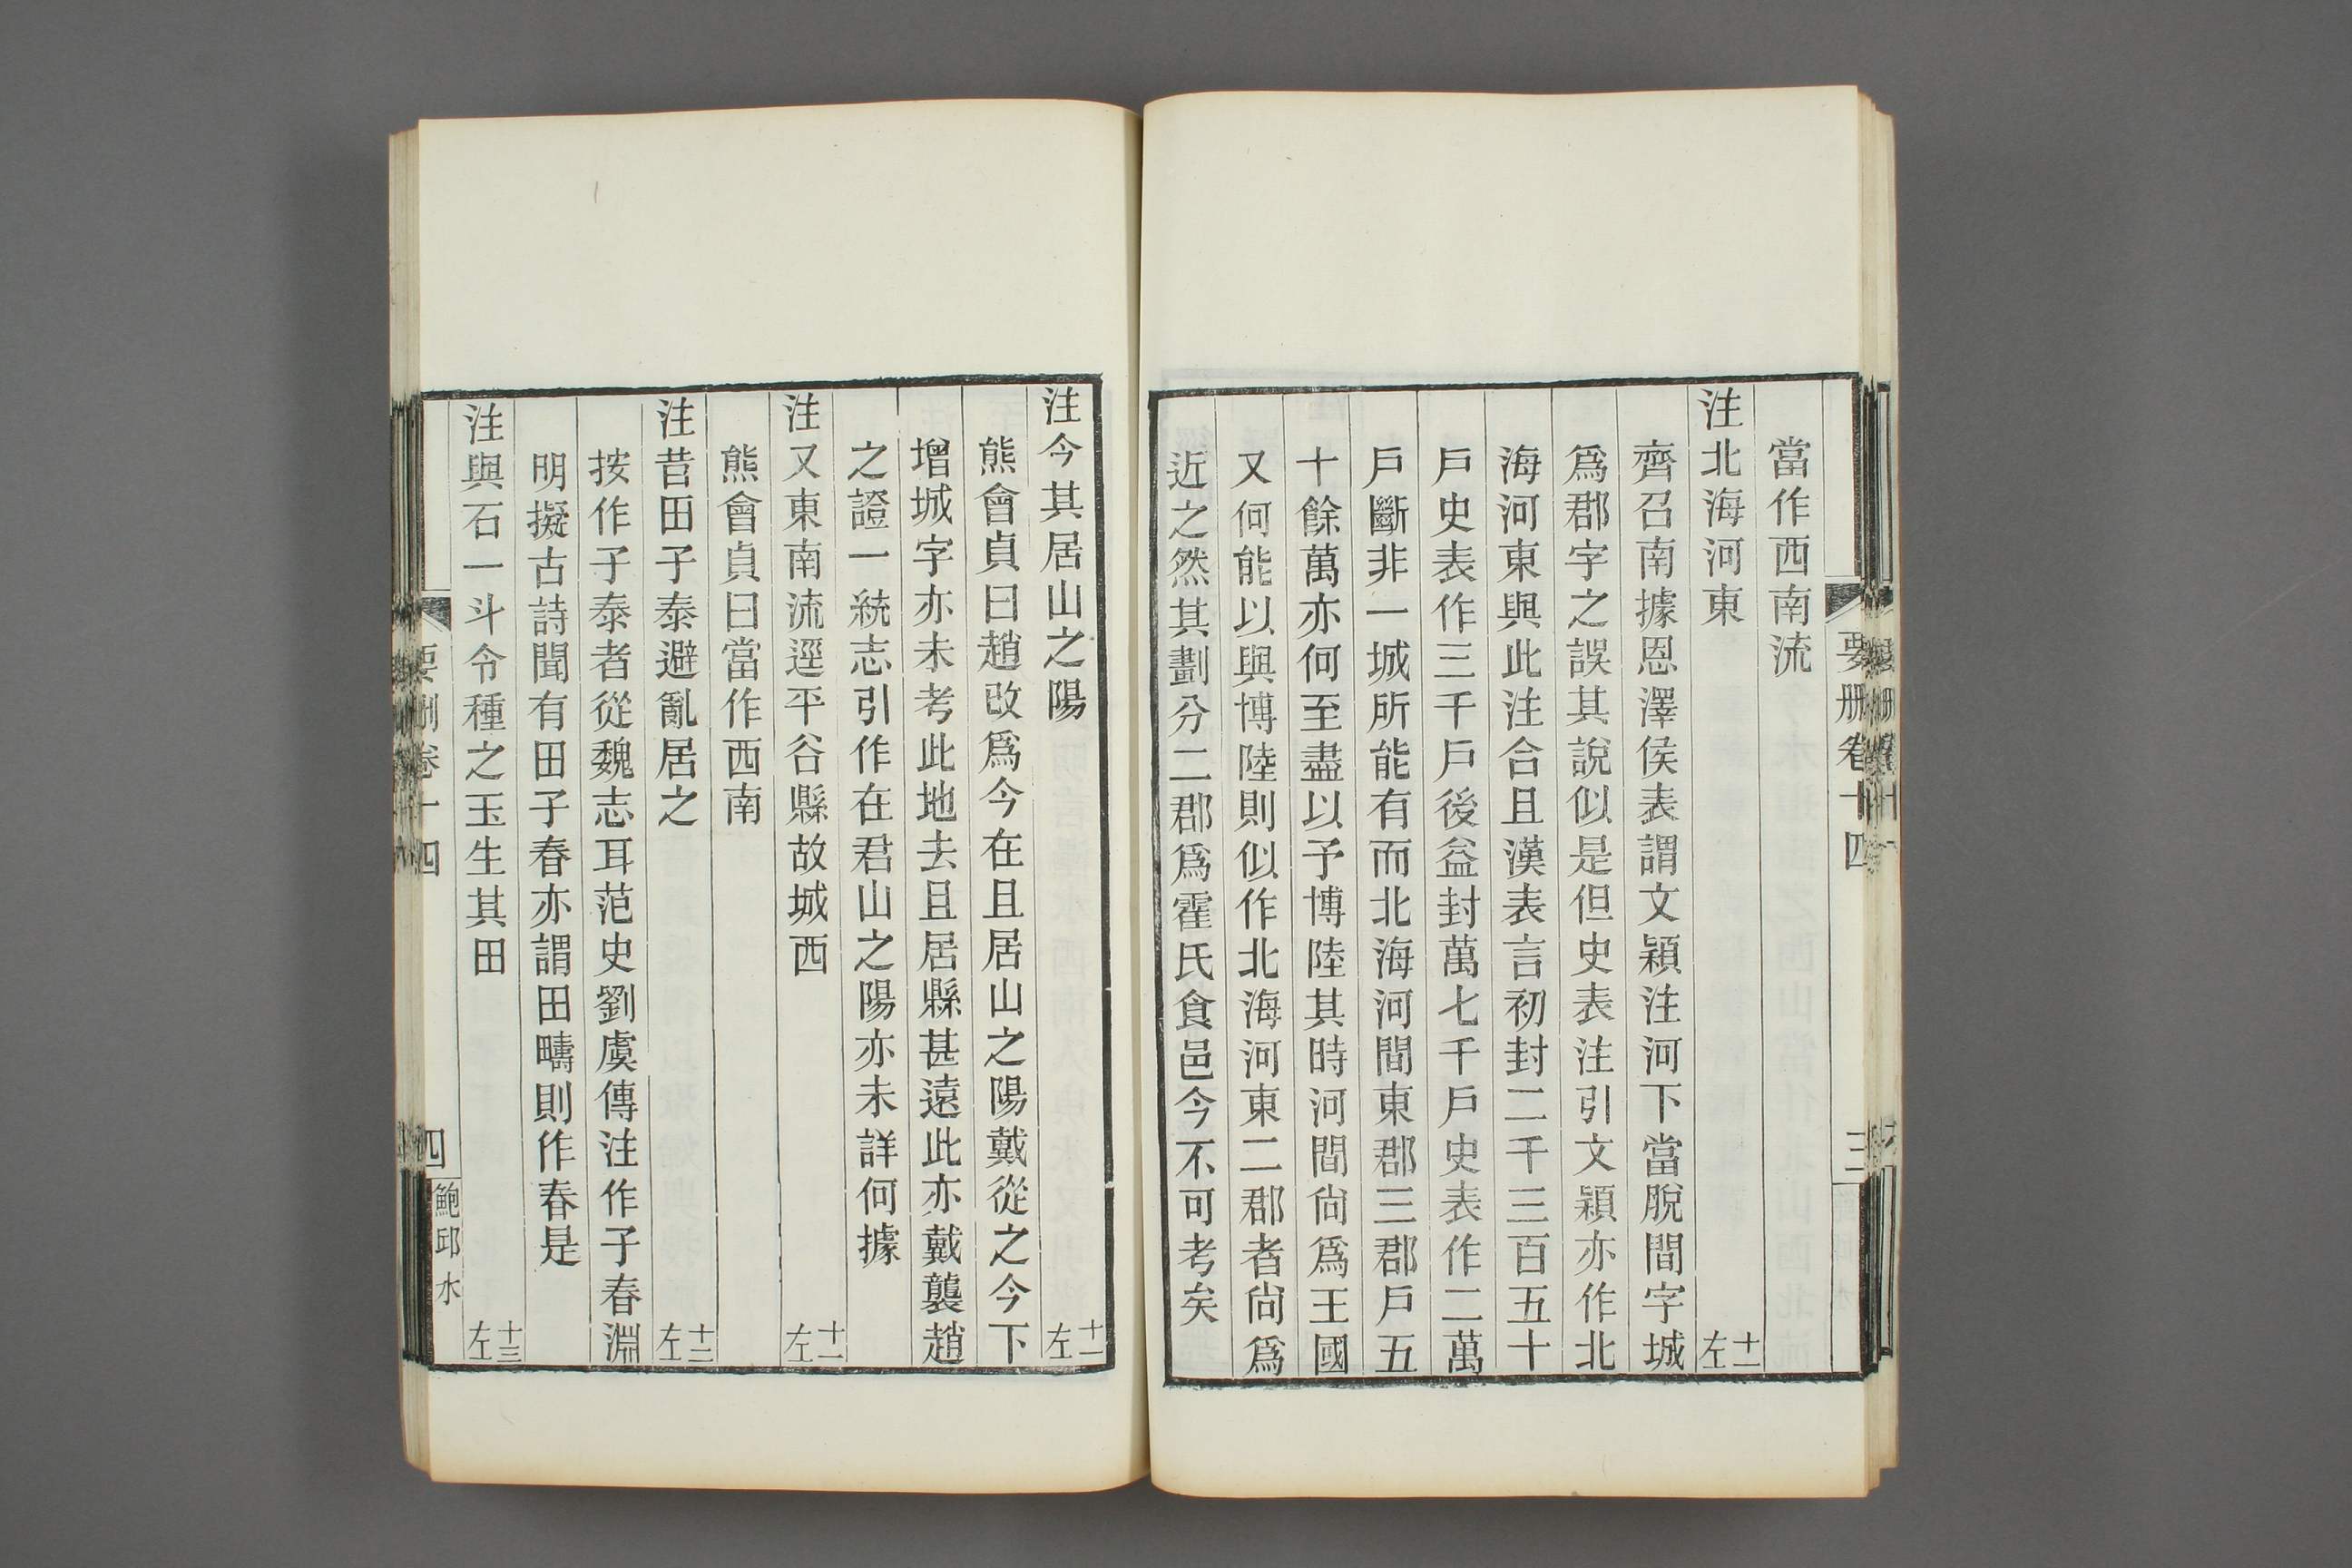 要刪卷十四
三
當作西南流
注北海河東 十一左
齊召南據恩澤侯表謂文穎注河下當脫間字城
爲郡字之誤其說似是但史表注引文穎亦作北
海河東與此注合且漢表言初封二千三百五十
戶史表作三千戶後益封萬七千戶史表作二萬
戶斷非一城所能有而北海河間東郡三郡戶五
十餘萬亦何至盡以予博陸其時河間尙爲王國
又何能以與博陸則似作北海河東二郡者尙爲
近之然其劃分二郡爲霍氏食邑今不可考矣
注今其居山之陽 十一左
熊會貞曰趙改爲今在且居山之陽戴從之今下
增城字亦未考此地去且居縣甚遠此亦戴襲趙
之證一統志引作在君山之陽亦未詳何據
注又東南流逕平谷縣故城西 十一左
熊會貞曰當作西南
注昔田子泰避亂居之 十二左
按作子泰者從魏志耳范史劉虞傳注作子春淵
明擬古詩聞有田子春亦謂田疇則作春是
注與石一斗令種之玉生其田 十三左
要刪卷十四
四
鮑邱水